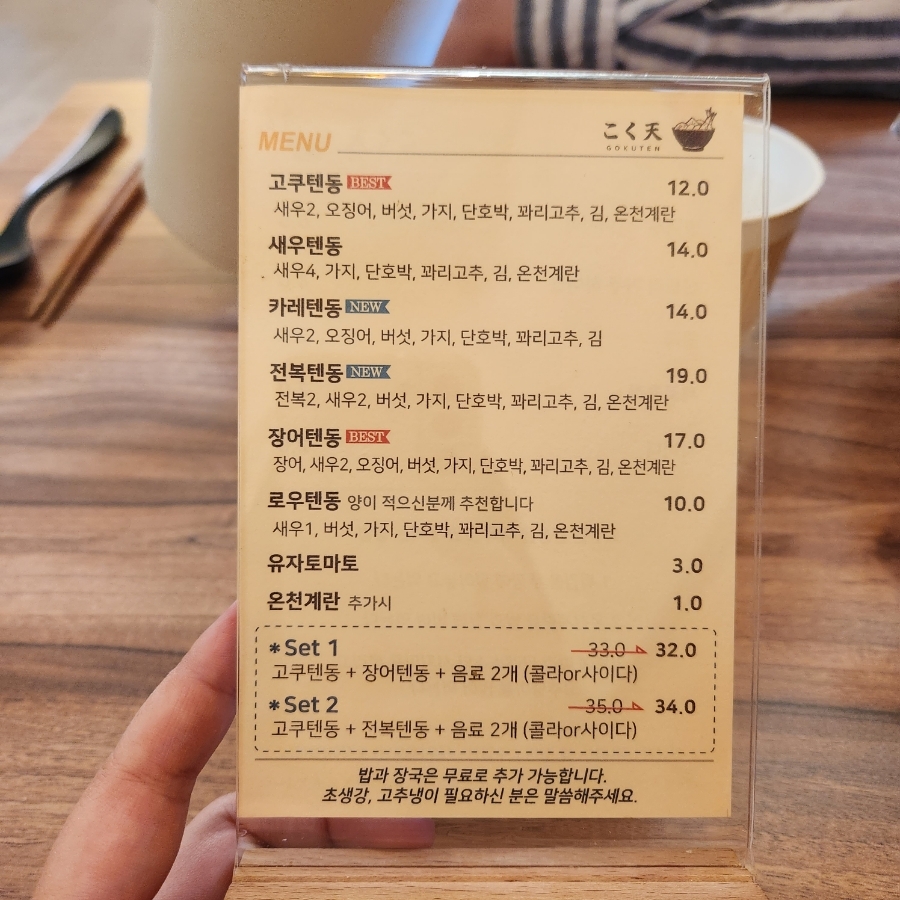 MENU
こく天
GOKUTEN
고쿠텐동 BEST 12.0
새우2, 오징어, 버섯, 가지, 단호박, 꽈리고추, 김, 온천계란
새우텐동 14.0
새우4, 가지, 단호박, 꽈리고추, 김, 온천계란
카레텐동 NEW 14.0
새우2, 오징어, 버섯, 가지, 단호박, 꽈리고추, 김
전복텐동 NEW 19.0
전복2, 새우2, 버섯, 가지, 단호박, 꽈리고추, 김, 온천계란
장어텐동 BEST 17.0
장어, 새우2, 오징어, 버섯, 가지, 단호박, 꽈리고추, 김, 온천계란
로우텐동 양이 적으신분께 추천합니다 10.0
새우1, 버섯, 가지, 단호박, 꽈리고추, 김, 온천계란
유자토마토 3.0
온천계란 추가시 1.0
*Set 1 33.0 32.0
고쿠텐동 + 장어텐동 + 음료 2개 (콜라or사이다)
*Set 2 35.0 34.0
고쿠텐동 + 전복텐동 + 음료 2개 (콜라or사이다)
밥과 장국은 무료로 추가 가능합니다.
초생강, 고추냉이 필요하신 분은 말씀해주세요.